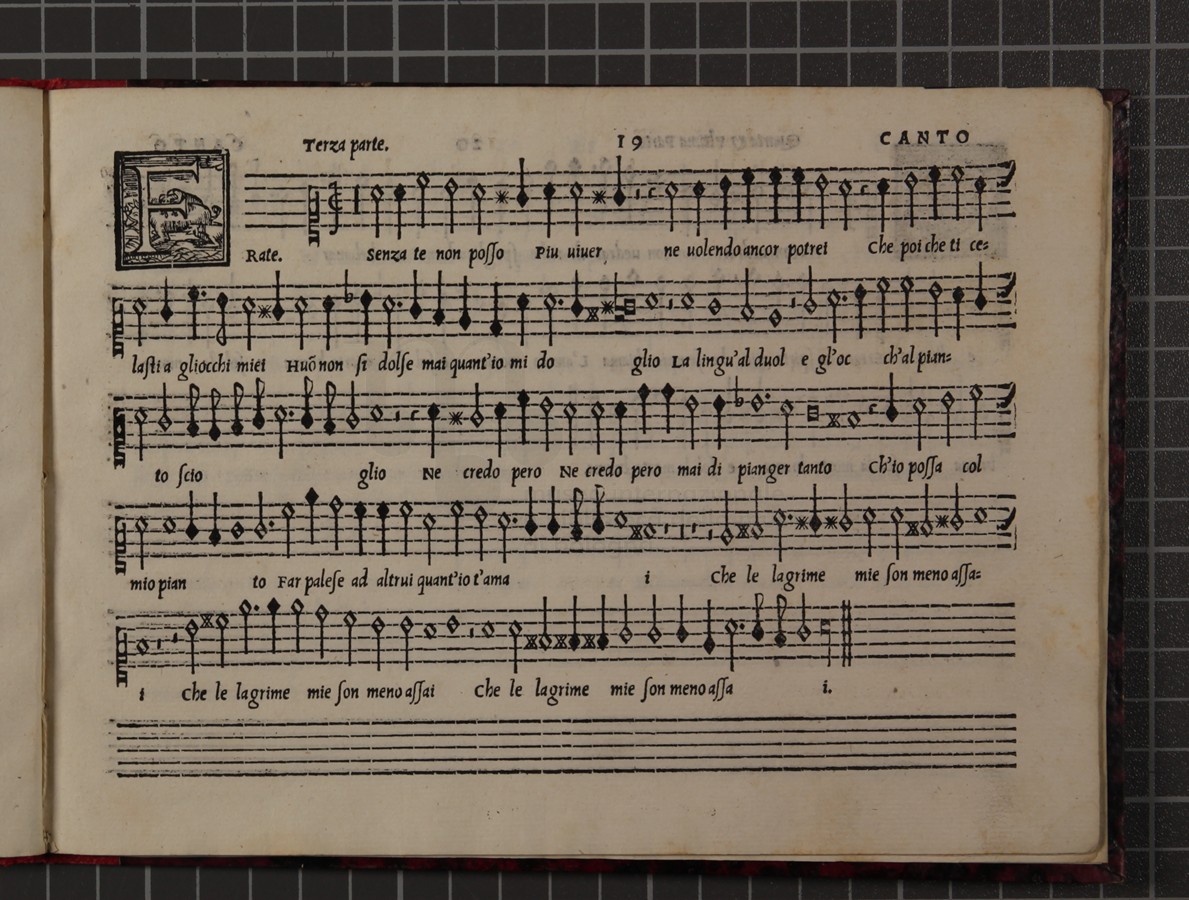 Terza parte. 19 CANTO
F Rate. Senza te non poſſo Piu uiuer, ne uolendo ancor potrei Che poi che ti ce=
laſti a gliocchi miei Huõ non ſi dolſe mai quant'io mi do glio La lingu'al duol e gl'oc ch'al pian=
to ſcio glio Ne credo pero Ne credo pero mai di pianger tanto Ch'io poſſa col
mio pian to Far paleſe ad altrui quant'io t'ama i Che le lagrime mie ſon meno aſſa=
i Che le lagrime mie ſon meno aſſai Che le lagrime mie ſon meno aſſa i.